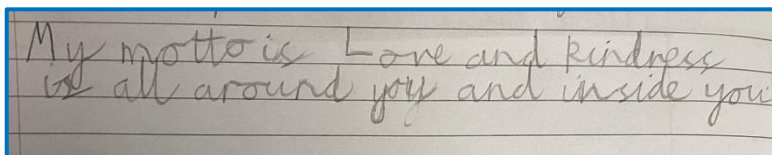 My motto is Love and kindness
is all around you and inside you